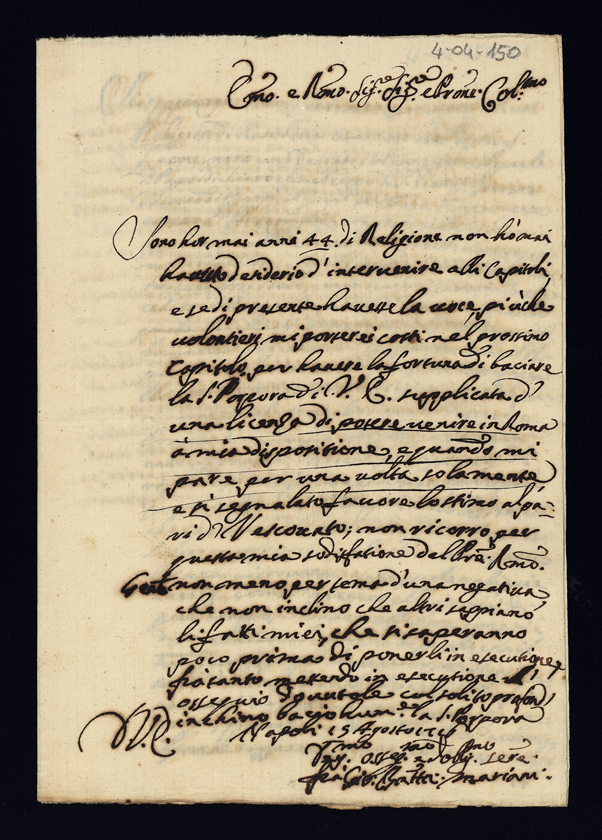 4-04-150
Emo. e Rmo. Sigre. Sigre. e Prone. Colmo
Sono hor mai anni 44. di Religione non hò mai
hauuto desiderio d'interuenire alli Capitoli,
e se di presente hauesse la uoce, più che
uolontieri mi porterei costì nel prossimo
Capitolo, per hauere la fortuna di baciare
la S. Porpora di V. E. supplicata d'
una licenza di potere uenire in Roma
à mia dispositione, e quando mi
pare per una uolta solamente
e sì segnalato fauore lo stimo al pa-
ri di Vescouato; non ricorro per
questa mia sodisfatione dal Pre. Rmo.
Genle non meno per tema d'una negatiua
che non inclino che altri sappiano
li fatti miei, che si saperanno
poco prima di ponerli in esecutione,
fra tanto mettendo in esecutione
ossequio douutole col solito profond
inchino bacio hum.te la S. Porpora
Napoli 15 Agosto
V. E.
Vmo Osseqmo Oblmo Sere.
fra Gio: Batta. Mariani.